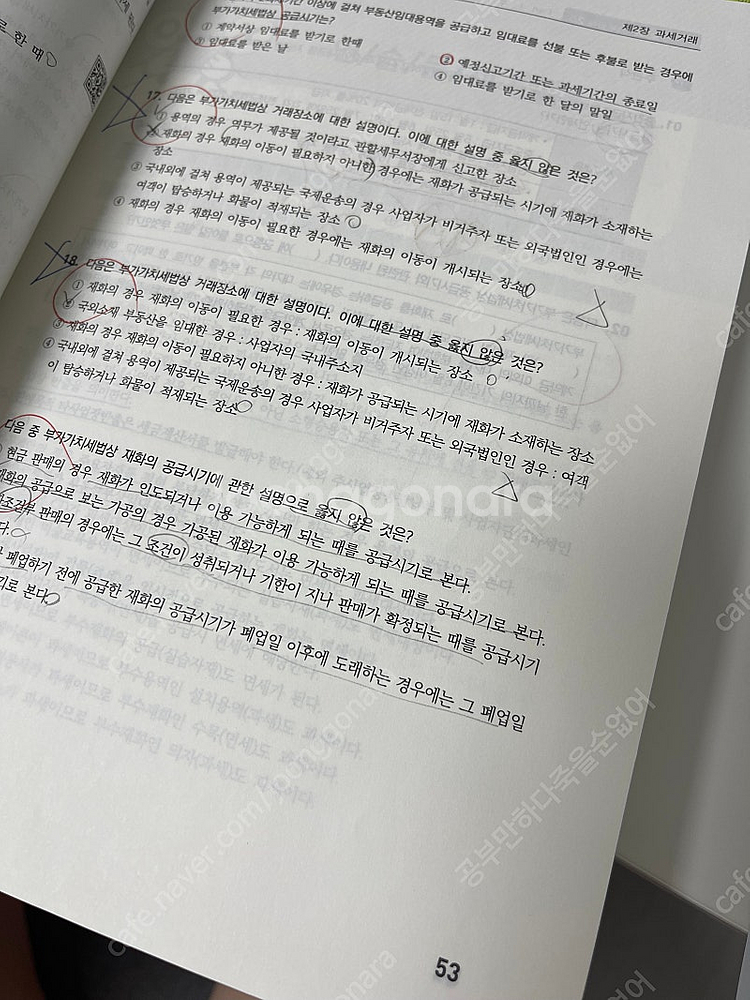 로 한 때
제2장 과세거래
기간 이상에 걸쳐 부동산임대용역을 공급하고 임대료를 선불 또는 후불로 받는 경우에
부가가치세법상 공급시기는?
① 계약서상 임대료를 받기로 한때
③ 예정신고기간 또는 과세기간의 종료일
② 임대료를 받은 날
④ 임대료를 받기로 한 달의 말일
17. 다음은 부가가치세법상 거래장소에 대한 설명이다. 이에 대한 설명 중 옳지 않은 것은?
① 용역의 경우 역무가 제공될 것이라고 관할세무서장에게 신고한 장소
② 재화의 경우 재화의 이동이 필요하지 아니한 경우에는 재화가 공급되는 시기에 재화가 소재하는
장소
③ 국내외에 걸쳐 용역이 제공되는 국제운송의 경우 사업자가 비거주자 또는 외국법인인 경우에는
여객이 탑승하거나 화물이 적재되는 장소
④ 재화의 경우 재화의 이동이 필요한 경우에는 재화의 이동이 개시되는 장소
18. 다음은 부가가치세법상 거래장소에 대한 설명이다. 이에 대한 설명 중 옳지 않은 것은?
① 재화의 경우 재화의 이동이 필요한 경우 : 재화의 이동이 개시되는 장소
② 국외소재 부동산을 임대한 경우 : 사업자의 국내주소지
③ 재화의 경우 재화의 이동이 필요하지 아니한 경우 : 재화가 공급되는 시기에 재화가 소재하는 장소
④ 국내외에 걸쳐 용역이 제공되는 국제운송의 경우 사업자가 비거주자 또는 외국법인인 경우 : 여객
이 탑승하거나 화물이 적재되는 장소
다음 중 부가가치세법상 재화의 공급시기에 관한 설명으로 옳지 않은 것은?
현금 판매의 경우 재화가 인도되거나 이용 가능하게 되는 때를 공급시기로 본다.
재화의 공급으로 보는 가공의 경우 가공된 재화가 이용 가능하게 되는 때를 공급시기로 본다.
조건부 판매의 경우에는 그 조건이 성취되거나 기한이 지나 판매가 확정되는 때를 공급시기
다.
폐업하기 전에 공급한 재화의 공급시기가 폐업일 이후에 도래하는 경우에는 그 폐업일
기로 본다.
53
공부만하다죽을순없어
cafe.naver.com/younugonara